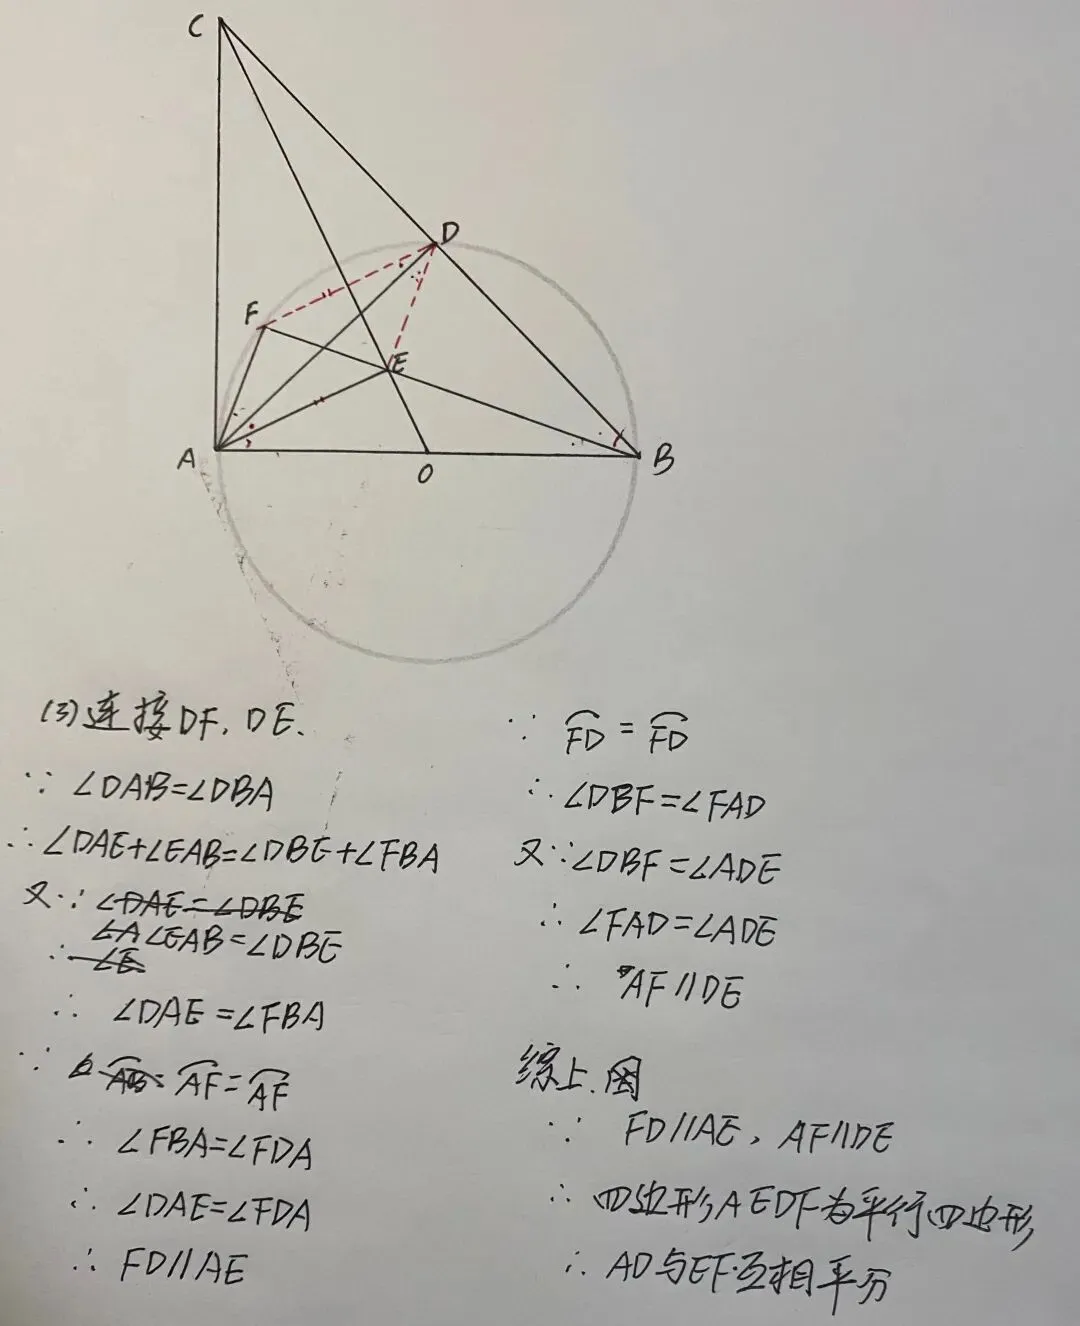 C
D
F
E
A
O
B
(3)连接DF，DE、
∵ ∠DAB=∠DBA
∴ ∠DAE+∠EAB=∠DBE+∠FBA
又∵ ∠DAE=∠DBE
∠A∠EAB=∠DBE
∴ ∠E
∴ ∠DAE=∠FBA
∵ ⌒AB= ⌒AF=⌒AF
∴ ∠FBA=∠FDA
∴ ∠DAE=∠FDA
∴ FD//AE
∵ ⌒FD=⌒FD
∴ ∠DBF=∠FAD
又∵∠DBF=∠ADE
∴ ∠FAD=∠ADE
∴ AF//DE
综上、
∵ FD//AE，AF//DE
∴ 四边形AEDF为平行四边形
∴ AD与EF互相平分